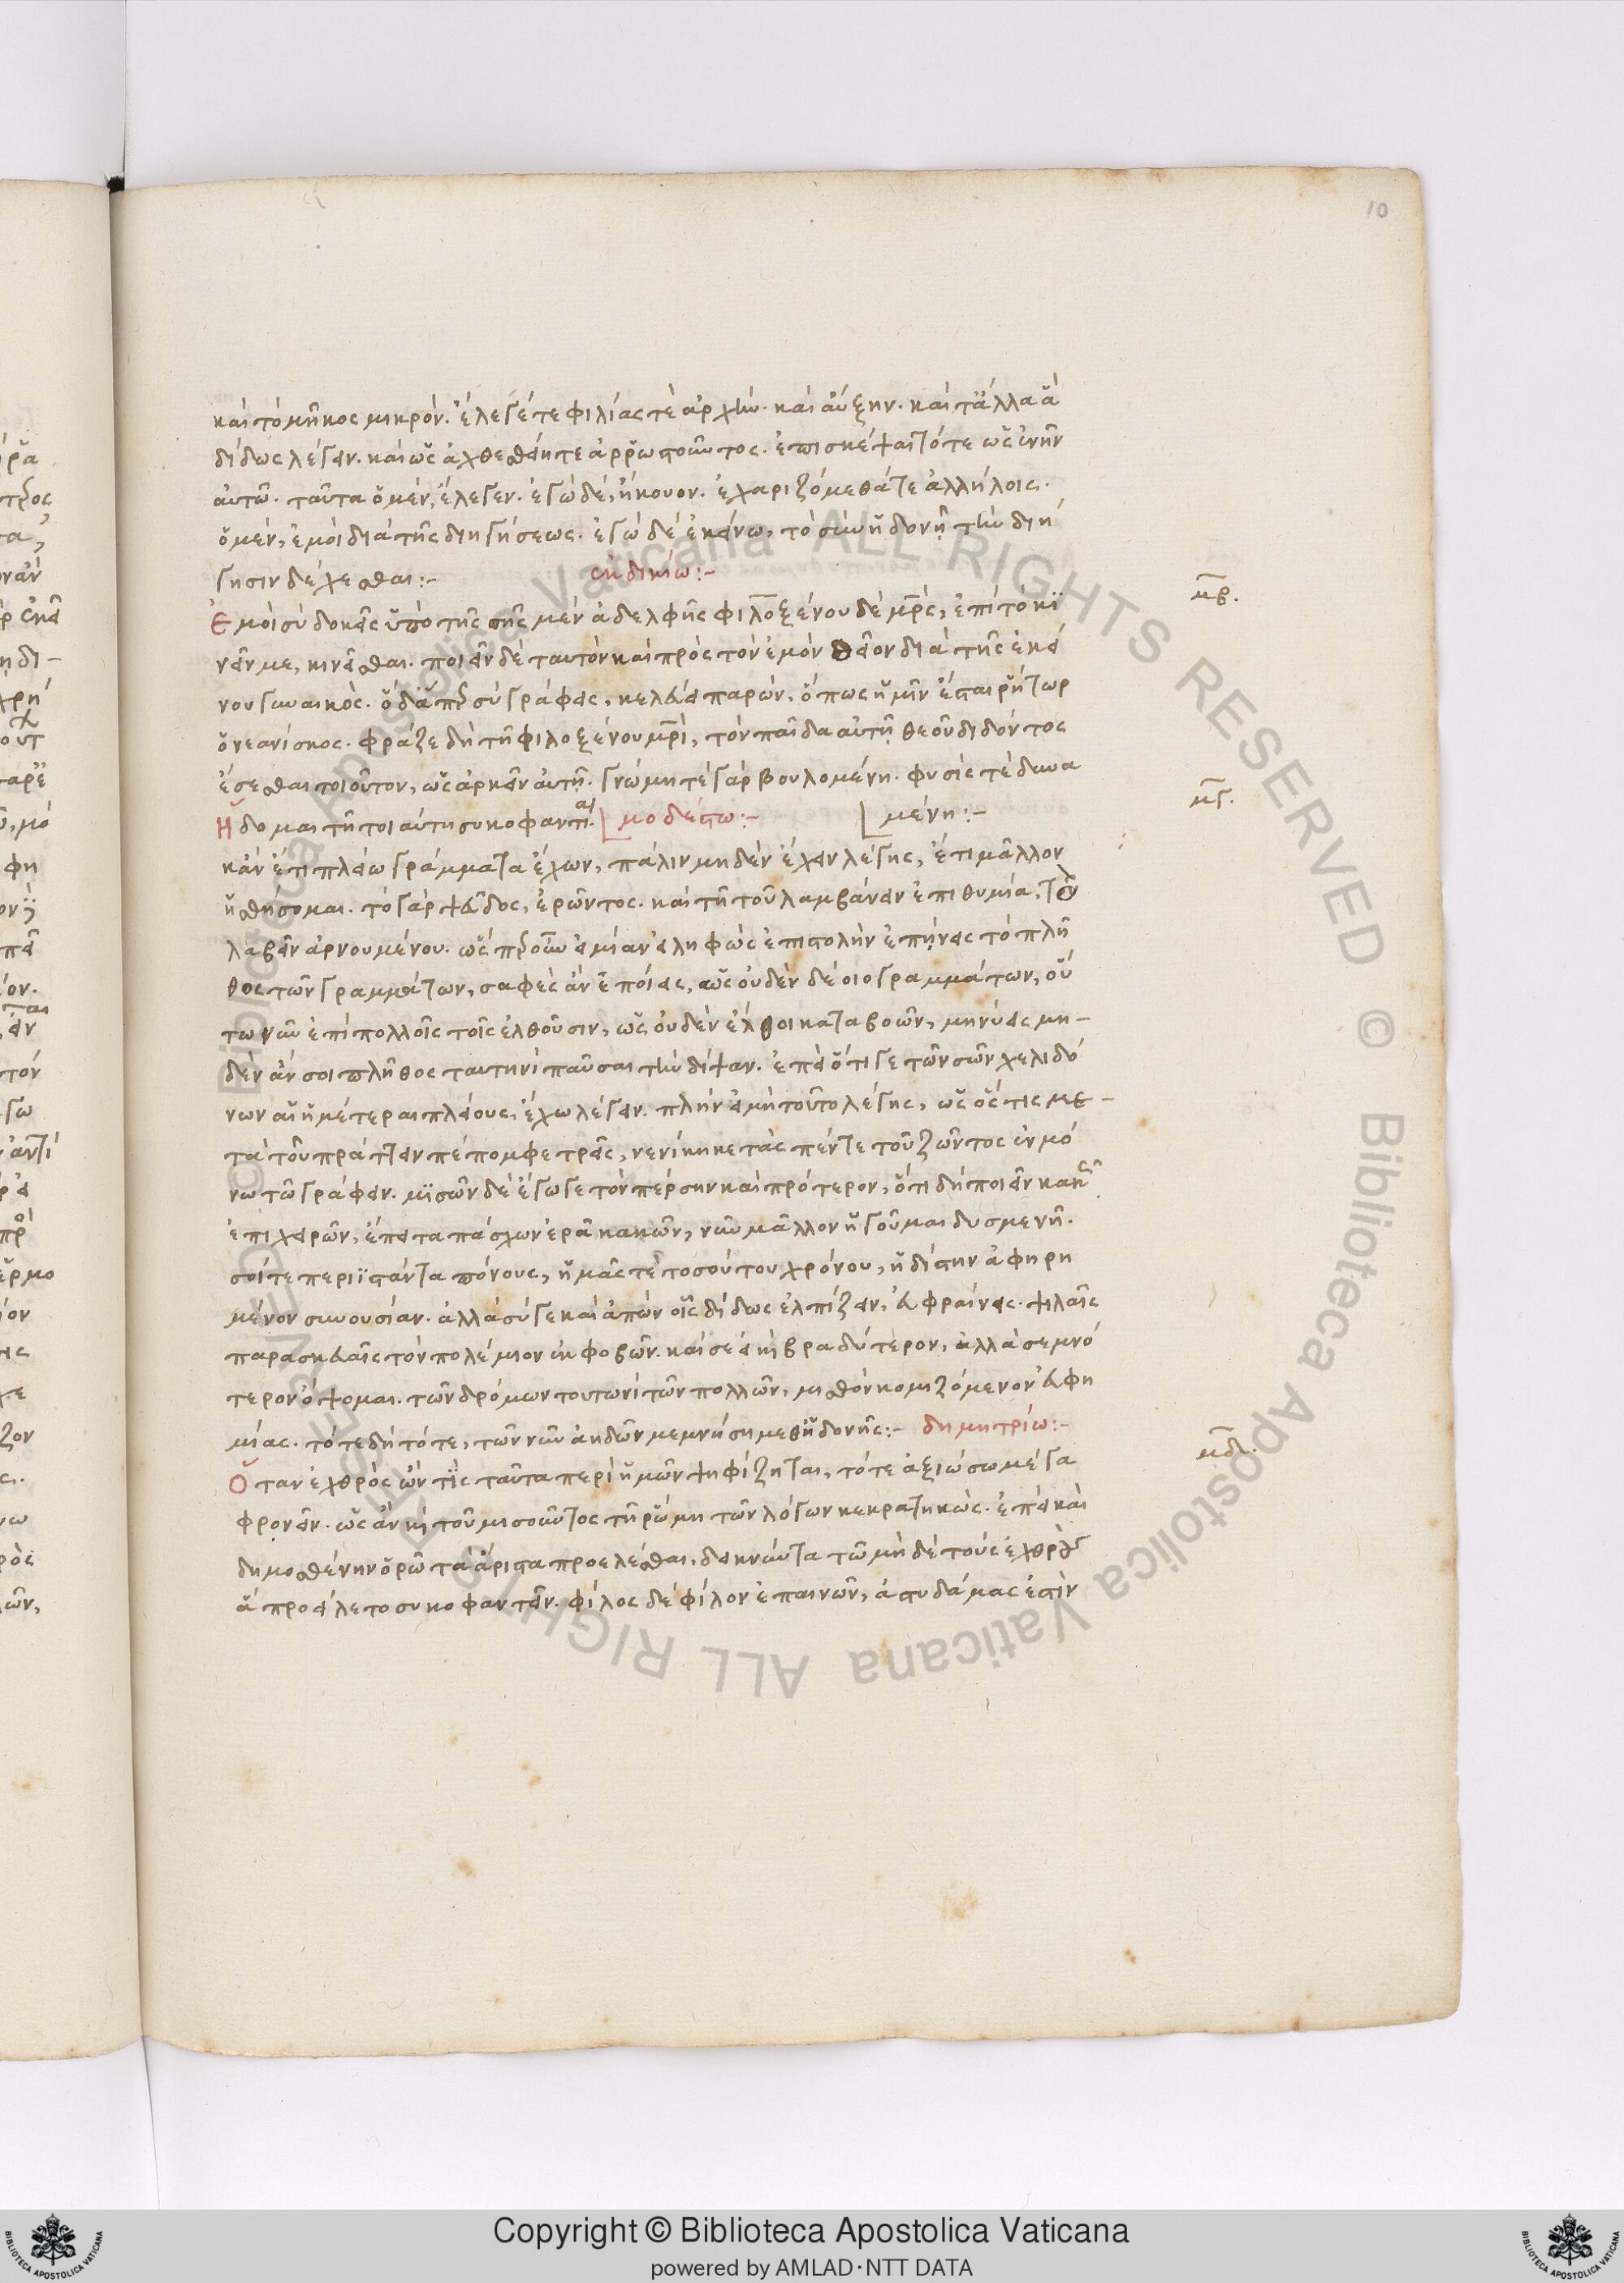 10
καὶ τὸ μῆκος μικρόν. ἐλέγετε φιλίας τὲ ἀρχὴν. καὶ αὔξην. καὶ τἄλλα ἃ
δίδως λέγειν. καὶ ὡς ἀχθεσθείη τε ἀρρωστοῦντος. ἐπισκέψαιτό τε ὡς ἐνῆν
αὐτῶ. ταῦτα ὁ μέν, ἔλεγεν. ἐγὼ δέ, ἤκουον. ἐχαριζόμεθά τε ἀλλήλοις.
ὁ μέν, ἐμοὶ διὰ τῆς διηγήσεως. ἐγὼ δὲ ἐκείνω, τὸ σὺν ἡδονῇ τὴν διή
γησιν δέχεσθαι:- ἐκδικίω:-
μβ.
Ἐμοὶ σὺ δοκεῖς ὑπὸ τῆς σῆς μὲν ἀδελφῆς φιλοξένου δὲ μρ̅ς, ἐπὶ τὸ κι
νεῖν με, κινεῖσθαι. ποιεῖν δὲ ταυτὸν καὶ πρὸς τὸν ἐμὸν θεῖον διὰ τῆς ἐκεί
νου γυναικός. ὃ δ' ἄπερ σὺ γράφεις, κελεύει παρών, ὅπως ἡμῖν ἔσται ῥήτωρ
ὁ νεανίσκος. φράζε δὴ τῆ φιλοξένου μρ̅ὶ, τὸν παῖδα αὐτῇ θεοῦ διδόντος
ἔσεσθαι τοιοῦτον, ὡς ἀρκεῖν αὐτῇ. γνώμη τὲ γὰρ βουλομένη. φύσις τὲ δυνα
μγ.
Ἥδομαι τῆ τοιαύτη συκοφαντίαι. μοδέστω:- μένη:-
κἂν ἔτι πλείω γράμματα ἔχων, πάλιν μηδὲν ἔχειν λέγης, ἔτι μᾶλλον
ἡσθήσομαι. τὸ γὰρ ψεῦδος, ἐρῶντος. καὶ τῆ τοῦ λαμβάνειν ἐπιθυμία, τὸ
λαβεῖν ἀρνουμένου. ὥσπερ οὖν εἰ μίαν εἰληφὼς ἐπιστολὴν ἐπήνεις τὸ πλῆ
θος τῶν γραμμάτων, σαφὲς ἂν ἐποίεις, ὡς οὐδὲν δέοιο γραμμάτων, οὕ
τω νῦν ἐπὶ πολλοῖς τοῖς ἐλθοῦσιν, ὡς οὐδὲν ἔλθοι καταβοῶν, μηνύεις μη-
δὲν ἄν σοι πλῆθος ταυτηνὶ παῦσαι τὴν δίψαν. ἐπεὶ ὅτι γε τῶν σῶν χελιδό
νων αἱ ἡμέτεραι πλείους, ἔχω λέγειν. πλὴν εἰ μὴ τοῦτο λέγης, ὡς ὅς τις με-
τὰ τοῦ πράττειν πέπομφε τρεῖς, νενίκηκε τὰς πέντε τοῦ ζῶντος ἐν μό
νω τῶ γράφειν. μισῶν δὲ ἔγωγε τὸν πέρσην καὶ πρότερον, ὅτι δὴ ποιεῖν κακῶς
ἐπιχειρῶν, ἔπειτα πάσχων ἐρᾶ κακῶν, νῦν μᾶλλον ἡγοῦμαι δυσμενῆ.
σοί τε περιιστάντα πόνους, ἡμᾶς τὲ τοσούτου χρόνου, ἡδίστην ἀφηρη
μένον συνουσίαν. ἀλλὰ σύ γε καὶ ἀπὼν οἷς δίδως ἐλπίζειν, εὐφραίνεις. ψιλαῖς
παρασκευαῖς τὸν πολέμιον ἐκφοβῶν. καὶ σὲ εἰ καὶ βραδύτερον, ἀλλὰ σεμνό
τερον ὄψομαι. τῶν δρόμων τουτωνὶ τῶν πολλῶν, μισθὸν κομιζόμενον εὐφη
μίας. τότε δὴ τότε, τῶν νῦν ἀηδῶν μεμνήσῃ μεθ' ἡδονῆς:- δημητρίω:-
μδ.
Ὅταν ἐχθρὸς ὤν τις ταῦτα περὶ ἡμῶν ψηφίζηται, τότε ἀξιώσω μέγα
φρονεῖν. ὡς ἂν καὶ τοῦ μισοῦντος τῆ ῥώμη τῶν λόγων κεκρατηκώς. ἐπεὶ καὶ
δημοσθένην ὁρῶ τὰ ἄριστα προελέσθαι, δεικνύντα τῶ μὴ δὲ τοὺς ἐχθροὺς
ἃ προείλετο συκοφαντεῖν. φίλος δὲ φίλον ἐπαινῶν, ἀστυδάμας ἐστὶν
Copyright © Biblioteca Apostolica Vaticana
powered by AMLAD·NTT DATA